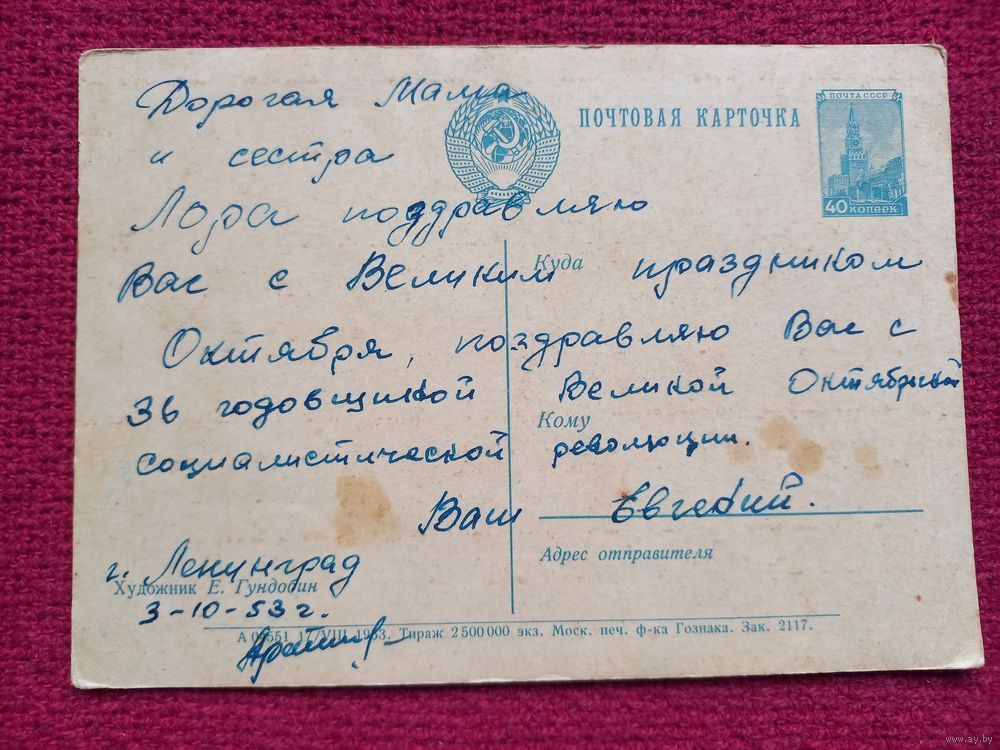 ПОЧТОВАЯ КАРТОЧКА
ПОЧТА СССР
40 КОПЕЕК
Дорогая Мама
и сестра
Лора поздравляю
Вас с Великим праздником
Октября, поздравляю Вас с
36 годовщиной Великой Октябрьской
социалистической революции.
Ваш Евгений.
г. Ленинград
3-10-53 г.
Куда
Кому
Адрес отправителя
Художник Е. Гундобин
17/VIII 1953. Тираж 2500000 экз. Моск. печ. ф-ка Гознака. Зак. 2117.
www.ay.by